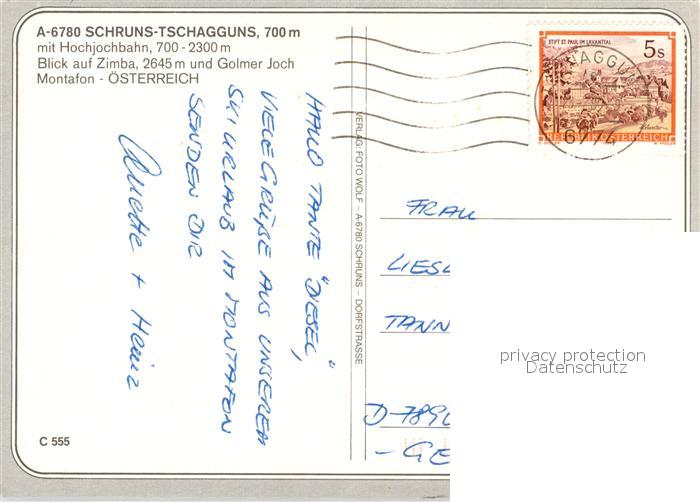 A-6780 SCHRUNS-TSCHAGGUNS, 700 m
mit Hochjochbahn, 700 - 2300 m
Blick auf Zimba, 2645 m und Golmer Joch
Montafon - ÖSTERREICH
HALLO TANTE "DIESEL",
VIELE GRÜßE AUS UNSEREM
SKIURLAUB IM MONTAFON
SENDEN DIR
Anette + Heinz
C 555
VERLAG: FOTO WOLF – A-6780 SCHRUNS – DORFSTRASSE
STIFT ST. PAUL IM LAVANTTAL
5 S
REPUBLIK ÖSTERREICH
6774
FRAU
LIESL
TANN
D-789
- GE
privacy protection
Datenschutz